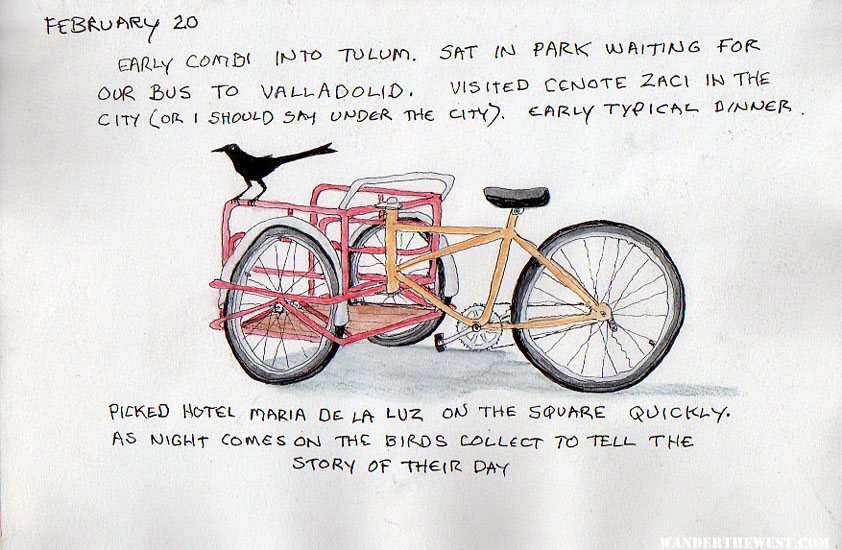 FEBRUARY 20
EARLY COMBI INTO TULUM. SAT IN PARK WAITING FOR
OUR BUS TO VALLADOLID. VISITED CENOTE ZACI IN THE
CITY (OR I SHOULD SAY UNDER THE CITY). EARLY TYPICAL DINNER.
PICKED HOTEL MARIA DE LA LUZ ON THE SQUARE QUICKLY.
AS NIGHT COMES ON THE BIRDS COLLECT TO TELL THE
STORY OF THEIR DAY
WANDERTHEWEST.COM